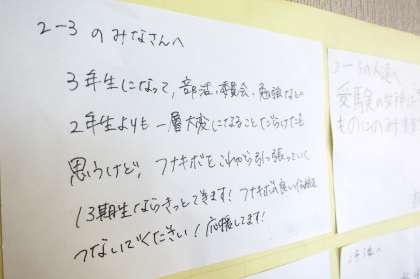 2-3のみなさんへ
3年生になって、部活、委員会、勉強などの
2年生よりも一層大変になることだらけだと
思うけど、フナキボをこれから引っ張っていく
13期生ならきっとできます!フナキボの良い伝統を
つないでください!応援してます!
2-5の人達へ
受験の女神は
ものにのみ